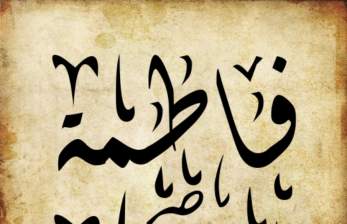 فاطمة